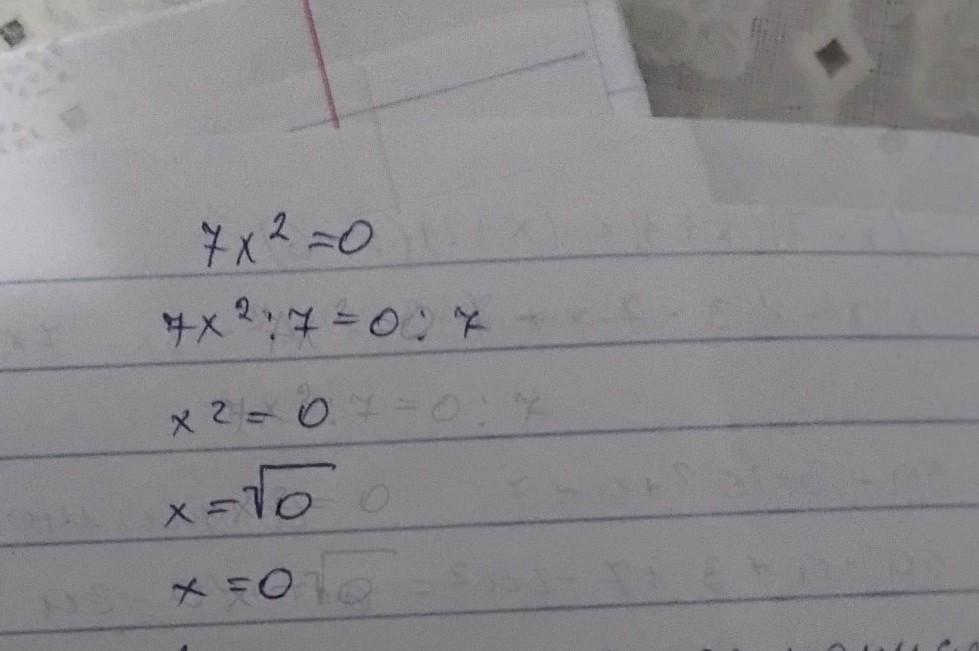 7x² = 0
7x² : 7 = 0 : 7
x² = 0
x = √0
x = 0